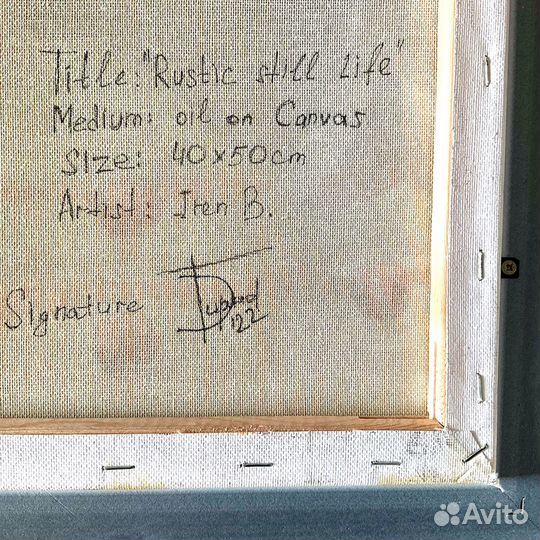 Title: "Rustic still life"
Medium: oil on Canvas
Size: 40x50cm
Artist: Iren B.
Signature
'22
Avito